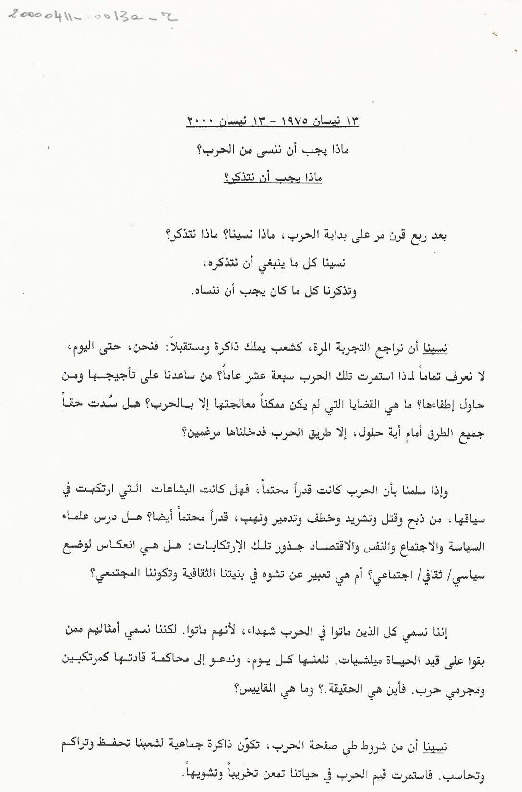 20000411-0013a-2
١٣ نيسان ١٩٧٥ - ١٣ نيسان ٢٠٠٠
ماذا يجب أن ننسى من الحرب؟
ماذا يجب أن نتذكر؟
بعد ربع قرن مر على بداية الحرب، ماذا نسينا؟ ماذا نتذكر؟
نسينا كل ما ينبغي أن نتذكره،
وتذكرنا كل ما كان يجب أن ننساه.
نسينا أن نراجع التجربة المرة، كشعب يملك ذاكرة ومستقبلاً: فنحن، حتى اليوم،
لا نعرف تماماً لماذا استمرت تلك الحرب سبعة عشر عاماً؟ من ساعدنا على تأجيجها ومن
حاول إطفاءها؟ ما هي القضايا التي لم يكن ممكناً معالجتها إلا بالحرب؟ هل سُدت حقاً
جميع الطرق أمام أية حلول، إلا طريق الحرب فدخلناها مرغمين؟
وإذا سلمنا بأن الحرب كانت قدراً محتماً، فهل كانت البشاعات التي ارتكبت في
سياقها، من ذبح وقتل وتشريد وخطف وتدمير ونهب، قدراً محتماً أيضا؟ هل درس علماء
السياسة والاجتماع والنفس والاقتصاد جذور تلك الإرتكابات: هل هي انعكاس لوضع
سياسي/ ثقافي/ اجتماعي؟ أم هي تعبير عن تشوه في بنيتنا الثقافية وتكوننا المجتمعي؟
إننا نسمي كل الذين ماتوا في الحرب شهداء، لأنهم ماتوا. لكننا نسمي أمثالهم ممن
بقوا على قيد الحياة ميلشيات. نلعنها كل يوم، وندعو إلى محاكمة قادتها كمرتكبين
ومجرمي حرب. فأين هي الحقيقة.؟ وما هي المقاييس؟
نسينا أن من شروط طي صفحة الحرب، تكوّن ذاكرة جماعية لشعبنا تحفظ وتراكم
وتحاسب. فاستمرت قيم الحرب في حياتنا تمعن تخريباً وتشويهاً.